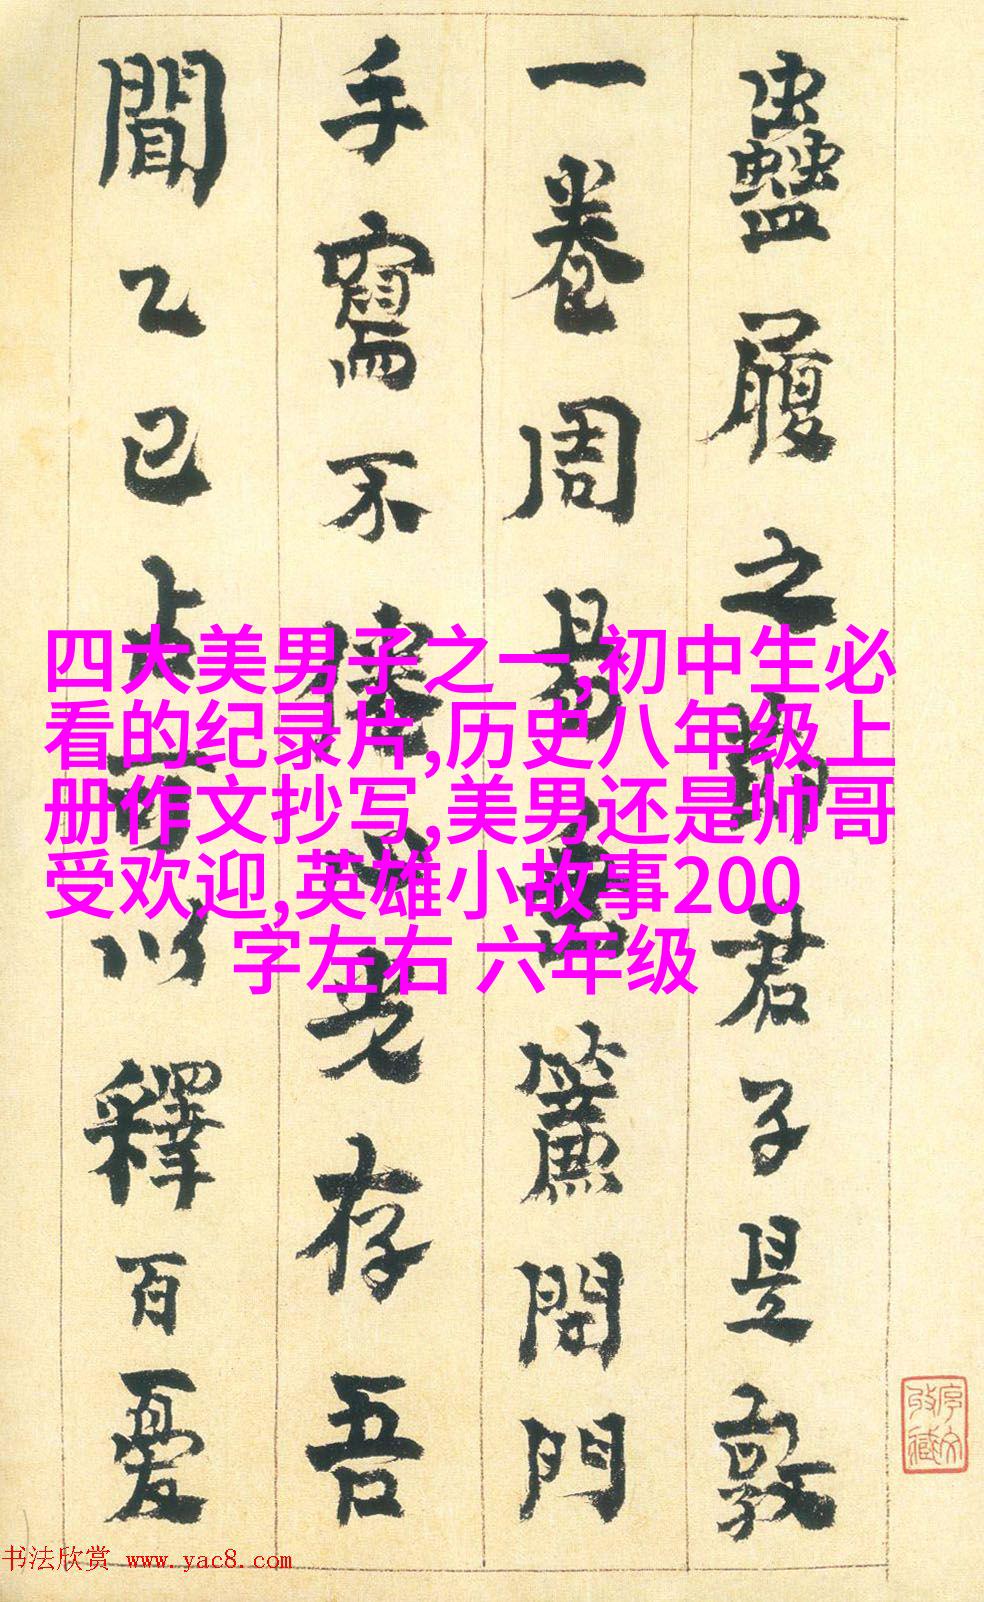 四大美男子之一,初中生必
看的纪录片,历史八年级上
册作文抄写,美男还是帅哥
受欢迎,英雄小故事200
字左右 六年级
蠱履之君子是敦
一卷周易簾門
手寫不老存吾
聞乙巳以釋百憂
书法欣赏 www.yac8.com